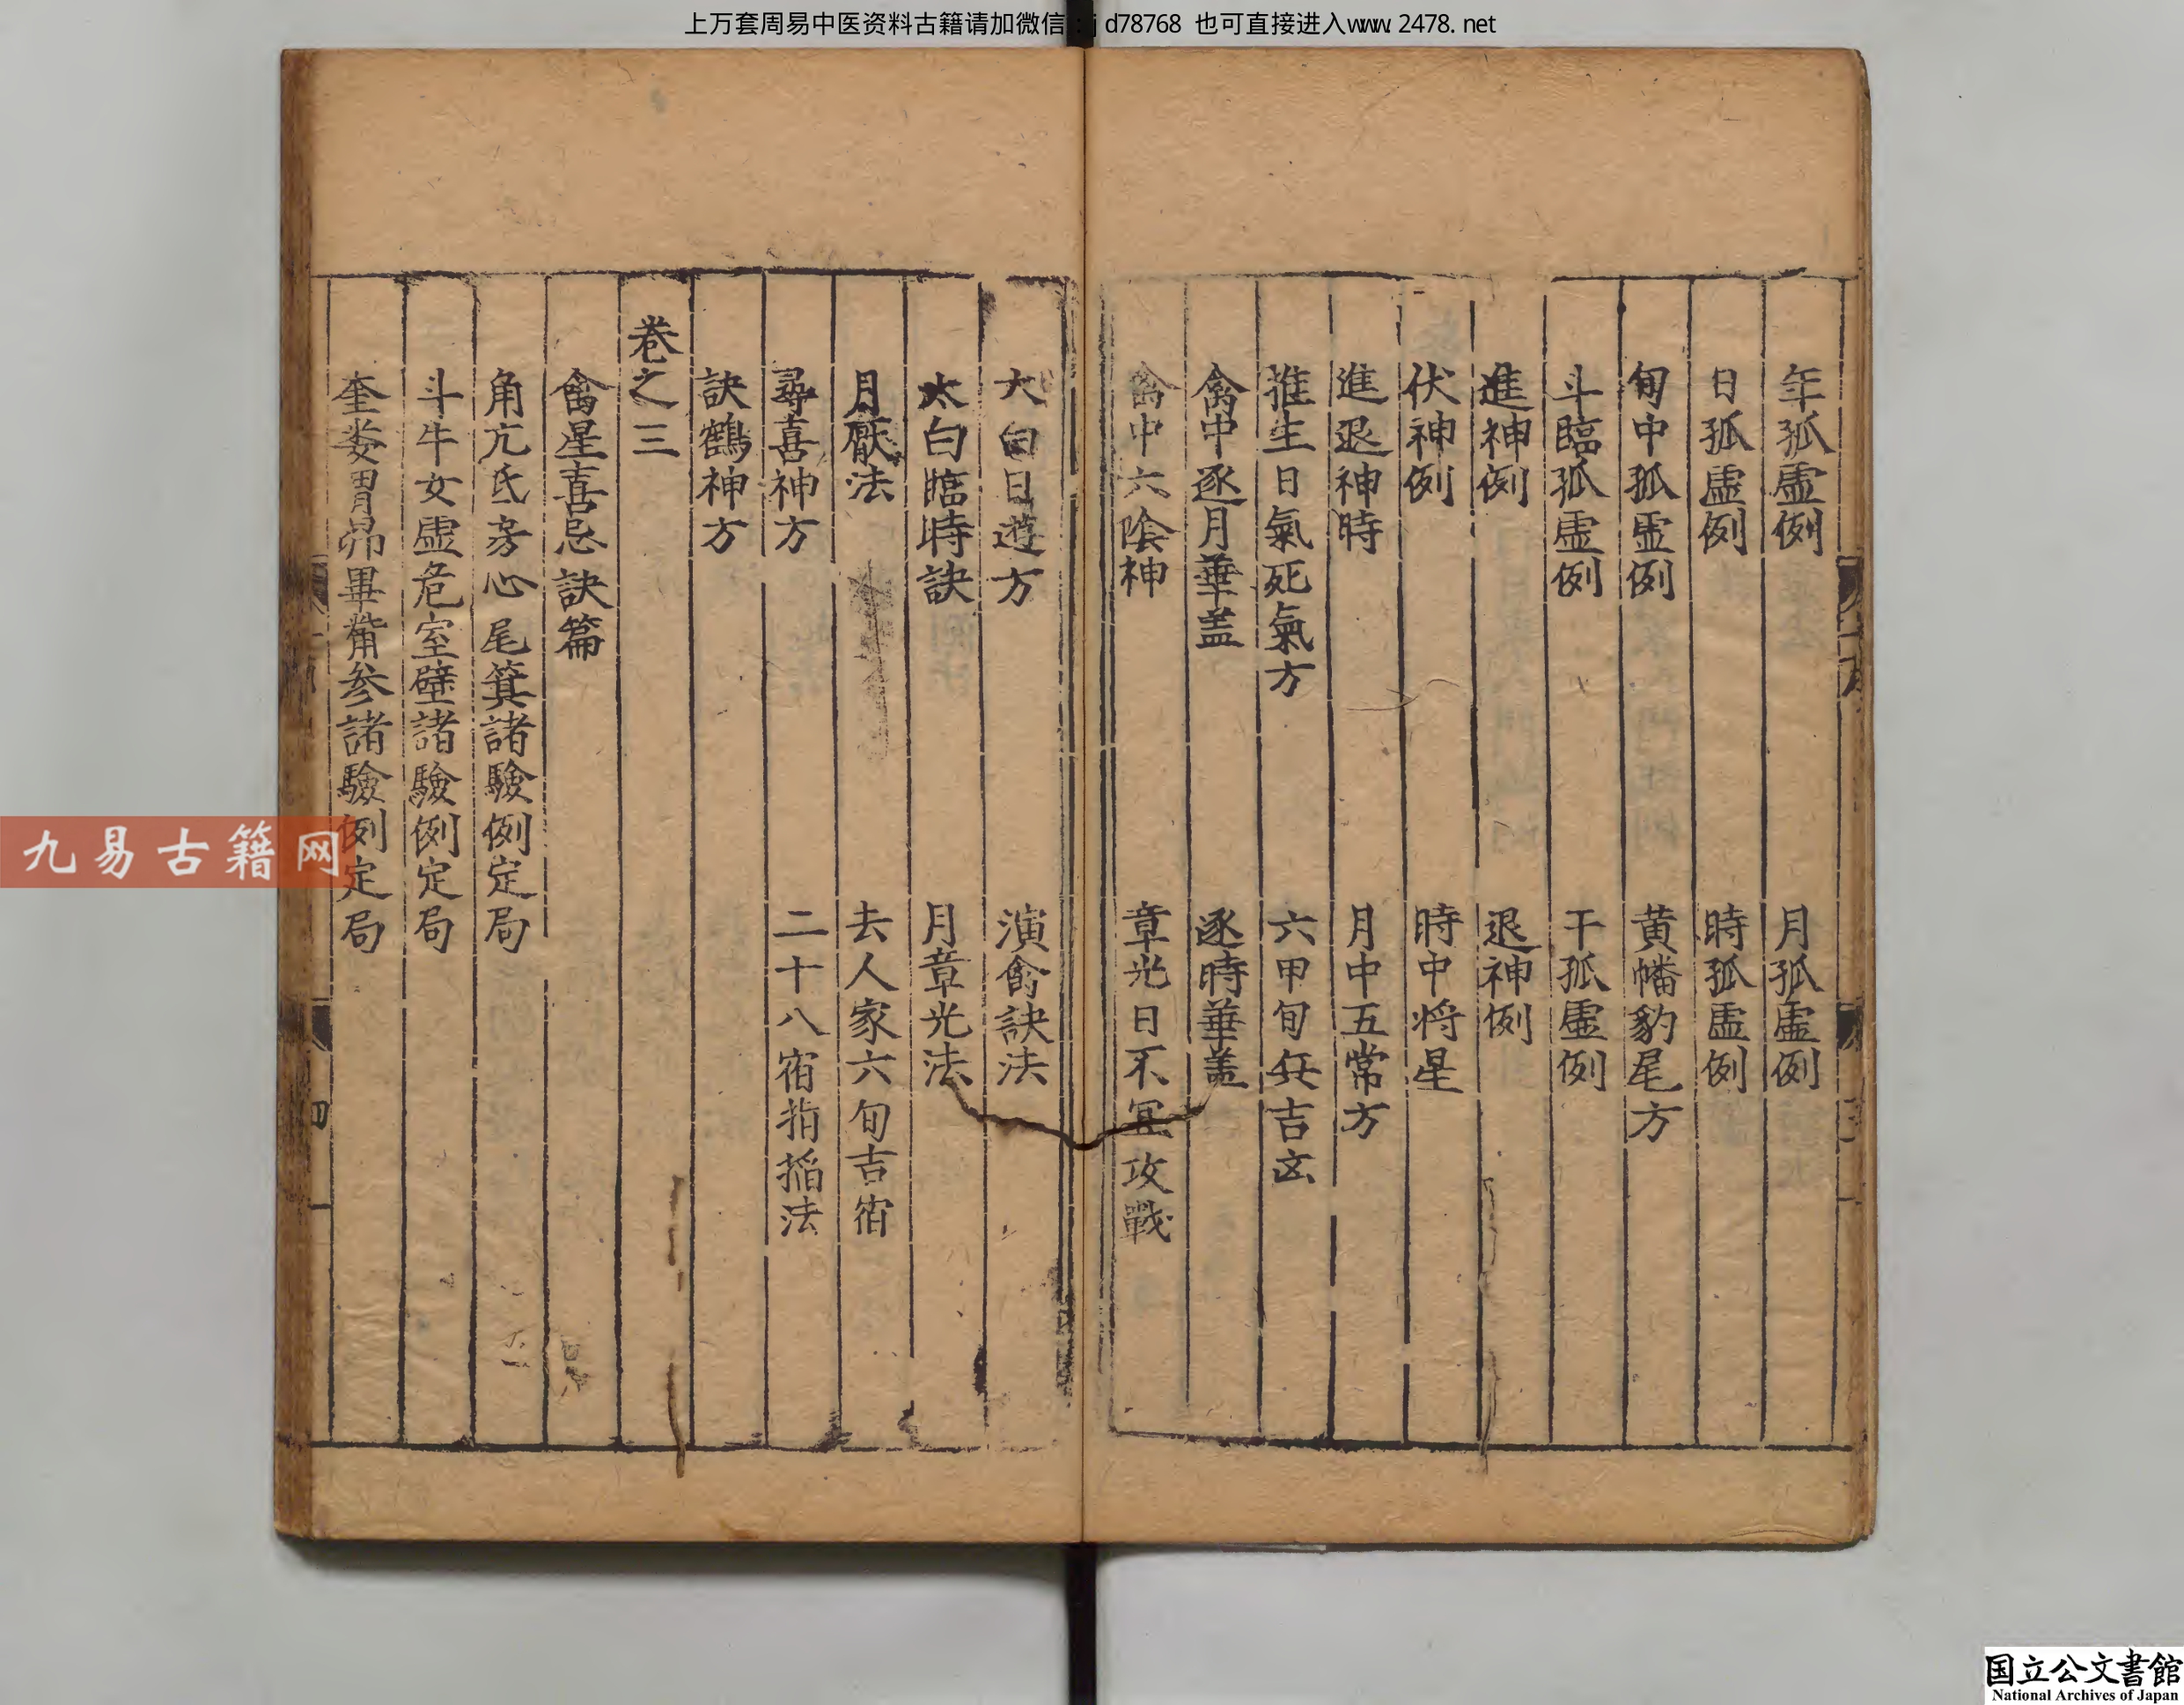 上万套周易中医资料古籍请加微信：jd78768 也可直接进入www.2478.net
年孤虛例 月孤虛例
日孤虛例 時孤虛例
旬中孤虛例 黄幡豹尾方
斗臨孤虛例 干孤虛例
進神例 退神例
伏神例 時中将星
進退神時 月中五常方
推生日氣死氣方 六甲旬兵吉凶
禽中逐月華盖 逐時華盖
禽中六陰神 章光日不宜攻戰
大白日遊方 演禽訣法
太白臨時訣 月章光法
月厭法 去人家六旬吉宿
尋喜神方 二十八宿指掐法
訣鶴神方
卷之三
禽星喜忌訣篇
角亢氐房心尾箕諸驗例定局
斗牛女虛危室壁諸驗例定局
奎婁胃昴畢觜參諸驗例定局
四
九易古籍网
国立公文書館
National Archives of Japan